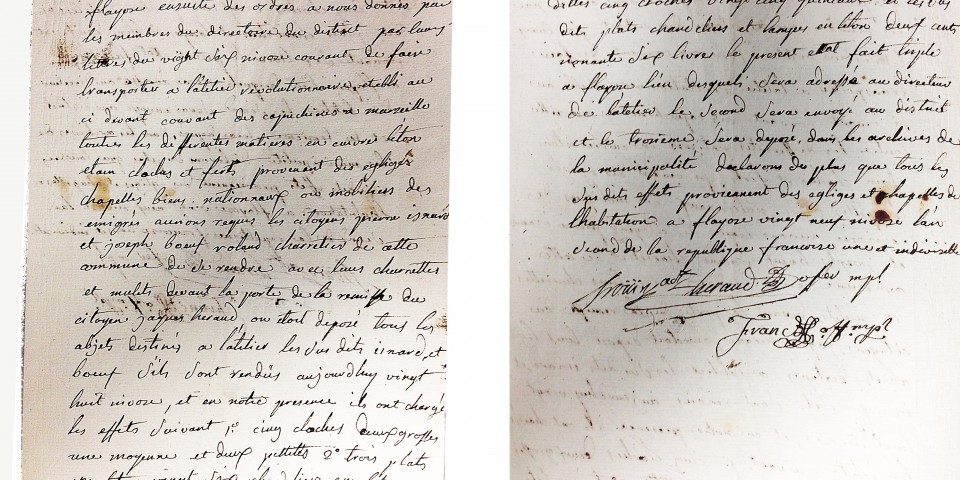 flayose ensuite des ordres a nous donnés par
les membres du directoire du distinct par leurs
lettres du vight six nivose courant de faire
transporter a latelier revolutionnaire etabli au
ci devant couvant des capuchines a marseille
toutes les differentes matieres en cuivre léton
etain cloches et ferts provenent des eglizes
chapelles biens nationnaux ou mobiliers des
emigrés aurions requis les citoyens pierre isnard
et joseph boeuf voland charretier de cette
commune de se rendre avec leurs charrettes
et mulets devant la porte de la remisse du
citoyen jaques heraud ou étoit deposé tous les
abjets destines a latelier les sus dits isnard et
boeuf s'éts sont rendüs aujourdhuy vingt
huit nivose, et en notre presence ils ont chargé
les effets suivant 1º cinq cloches deux grosses
une moyenne et deux pettites 2º trois plats
cinq cloches vingt cinq quintaux et les
dits plats chandeliers et lampes en léton deux cents
nonante six livres le present etat fait triple
a flayose lun desquels sera adressée au directeur
de latelier le second sera envoyé au district
et le troisieme sera deposé dans les archives de
la municipalité declarons de plus que tous les
sus dits effets provienent des eglizes et chapelles de
lhabitation a flayose vingt neuf nivose l'an
second de la republique francoise une et indivisible
heraud ofer mpl
Franc off. mpl